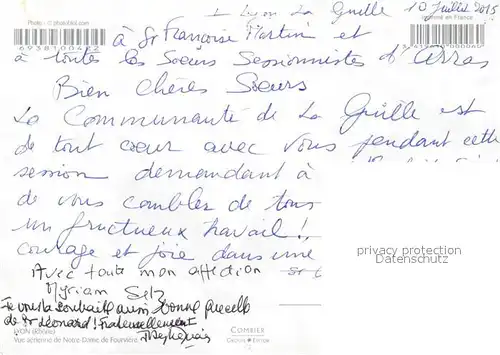 Lyon La Guille 10 Juillet 2015
Photo : © photo1001.com
Imprimé en France
6938100422
à Sr Françoise Martin et
à toutes les Soeurs Sessionnistes d'Arras
Bien chères Soeurs
La Communauté de La Guille est
de tout coeur avec vous pendant cette
session demandant à
de vous combler de tous
un fructueux travail !
courage et joie dans une
privacy protection
Avec toute mon affection
Personal Data
Myriam
Je vous la souhaite aussi bonne
de Sr Léonard ! Fraternellement
LYON (Rhône)
COMBIER
Vue aérienne de Notre Dame de Fourvière